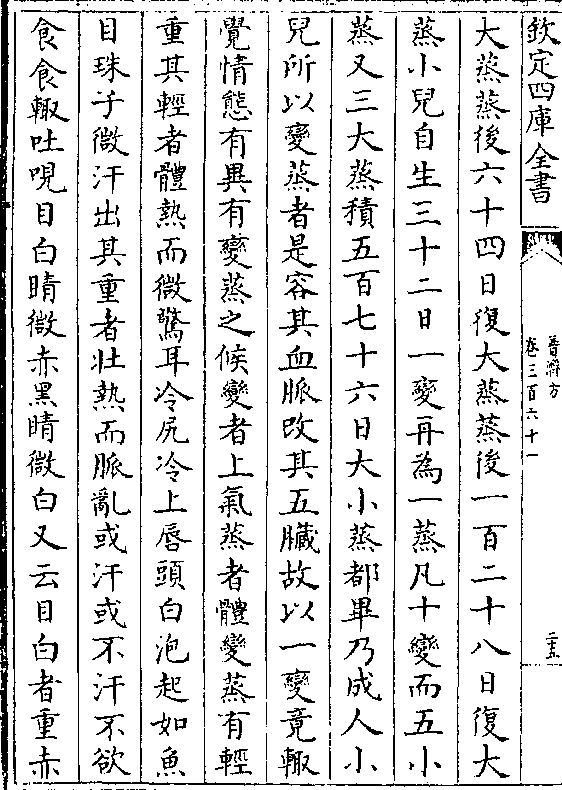 欽定四庫全書
普濟方
卷三百六十一
二十五
大蒸蒸後六十四日復大蒸蒸後一百二十八日復大
蒸小兒自生三十二日一變再為一蒸凡十變而五小
蒸又三大蒸積五百七十六日大小蒸都畢乃成人小
兒所以變蒸者是容其血脈改其五臟故以一變竟輙
覺情態有異有變蒸之候變者上氣蒸者體變蒸有輕
重其輕者體熱而微驚耳冷尻冷上唇頭白泡起如魚
目珠子微汗出其重者壯熱而脈亂或汗或不汗不欲
食食輙吐哯目白睛微赤黑睛微白又云目白者重赤